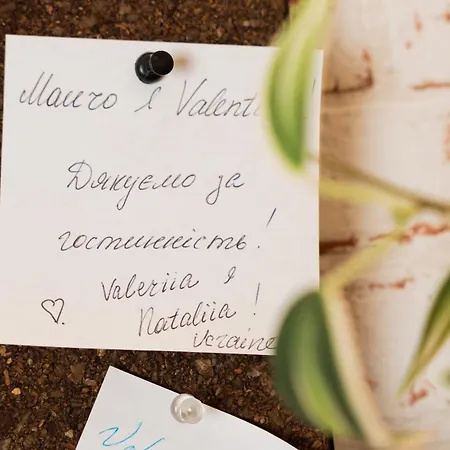 Mauro e Valent !
Дякуємо за
гостинність!
Valeriia e
Nataliia!
Ucraine